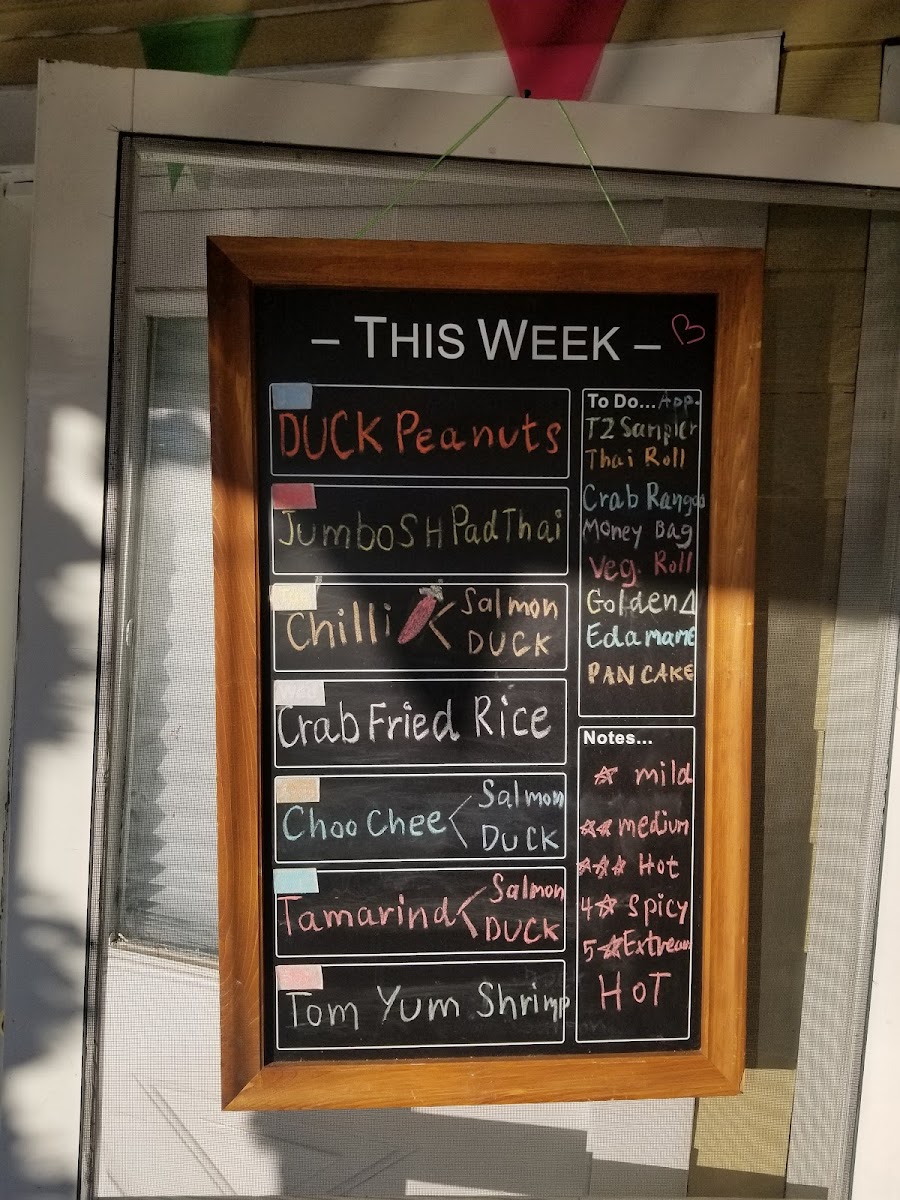 – THIS WEEK –
DUCK Peanuts
Jumbo SH Pad Thai
Chilli Salmon
DUCK
Crab Fried Rice
Choo Chee Salmon
DUCK
Tamarind Salmon
DUCK
Tom Yum Shrimp
To Do... App.
TZ Sampler
Thai Roll
Crab Rangoo
Money Bag
Veg. Roll
Golden
Edamame
PAN CAKE
Notes...
☆ mild
☆☆ medium
☆☆☆ Hot
4☆ Spicy
5☆ Extream
HOT